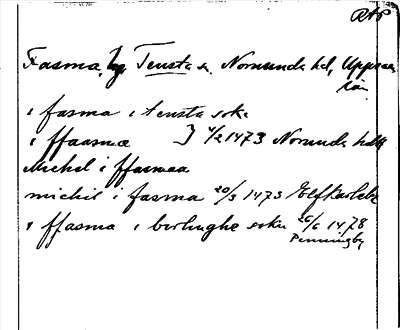 RAP
Fasma, by, Tensta sn. Norunda hd, Uppsala
län
i fasma i tensta sokn
i ffaasma } 4/2 1473 Norunda hdb
Michel i ffasmaa
michil i fasma 20/3 1473 Elfkarleby
i ffasma i berlinghe sokn 26/6 1478
Penningby